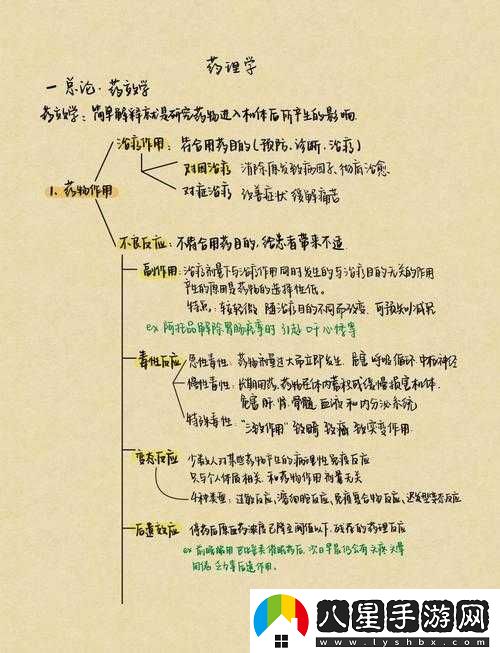 药理学
一 总论·药效学
药效学：简单解释就是研究药物进入机体后所产生的影响
治疗作用：符合用药目的(预防、诊断、治疗)
对因治疗 消除原发致病因子、彻底治愈
1、药物作用
对症治疗 改善症状 缓解痛苦
不良反应：不符合用药目的，给患者带来不适
副作用：治疗剂量下与治疗作用同时发生的与治疗目的无关的作用
产生的原因是药物的选择性低。
特点：较轻微 随治疗目的不同而改变、可预知少减轻
ex 阿托品解除胃肠痉挛时 引起 心悸等
毒性反应 急性毒性：药物剂量过大而立即发生、危害 呼吸 循环 中枢神经
慢性毒性：长期用药，药物在体内蓄积或缓慢损害机体、
危害 肝、肾、骨髓、血液 和 内分泌系统
特殊毒性："三致作用" 致畸 致癌 致突变作用
变态反应 少数人对某些药物产生的病理性免疫反应
只与个人体质相关、和药物作用剂量无关
4种类型：过敏反应、溶细胞反应、免疫复合物反应、迟发型变态反应
后遗效应 停药后原血药浓度已降至阈值以下，残存的药理反应
ex 前晚服用巴比妥类催眠药后，次日早晨仍会有头疼 头晕
困倦 乏力等后遗作用。
八星手游网
www.lyshbx.com